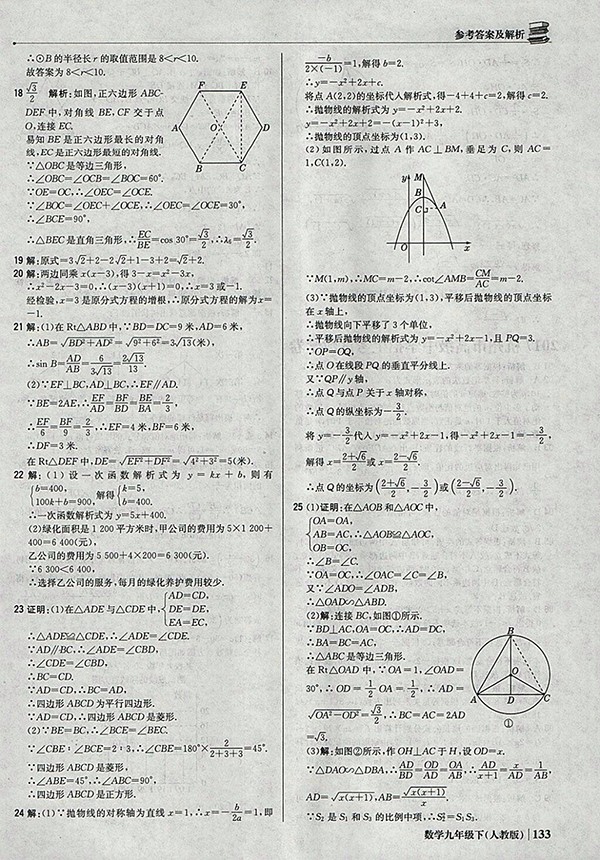 参考答案及解析
∴⊙B的半径长r的取值范围是8<r<10.
故答案为8<r<10.
18 √3/2 解析:如图,正六边形ABC-
DEF中,对角线BE,CF交于点
O,连接EC.
易知BE是正六边形最长的对角
线,EC是正六边形最短的对角线.
∵△OBC是等边三角形,
∴∠OBC=∠OCB=∠BOC=60°.
∵OE=OC,∴∠OEC=∠OCE.
∵∠BOC=∠OEC+∠OCE,∴∠OEC=∠OCE=30°,
∴∠BCE=90°,
∴△BEC是直角三角形,∴EC/BE=cos 30°=√3/2,∴λ₆=√3/2.
F E A O D B C
19 解:原式=3√2+2-2√2+1-3=√2.
20 解:两边同乘x(x-3),得3-x=x²-3x,
∴x²-2x-3=0,∴(x-3)(x+1)=0,∴x=3或-1.
经检验,x=3是原分式方程的增根,∴原分式方程的解为x=
-1.
21 解:(1)在Rt△ABD中,∵BD=DC=9米,AD=6米,
∴AB=√(BD²+AD²)=√(9²+6²)=3√13(米),
∴sin B=AD/AB=6/(3√13)=2√13/13.
(2)∵EF⊥BC,AD⊥BC,∴EF∥AD.
∵BE=2AE,∴EF/AD=BF/BD=BE/BA=2/3,
∴EF/6=BF/9=2/3,∴EF=4米,BF=6米,
∴DF=3米.
在Rt△DEF中,DE=√(EF²+DF²)=√(4²+3²)=5(米).
22 解:(1)设一次函数解析式为y=kx+b,则有
{b=400, 100k+b=900,解得{k=5, b=400.
∴一次函数解析式为y=5x+400.
(2)绿化面积是1 200平方米时,甲公司的费用为5×1 200+
400=6 400(元),
乙公司的费用为5 500+4×200=6 300(元).
∵6 300<6 400,
∴选择乙公司的服务,每月的绿化养护费用较少.
23 证明:(1)在△ADE与△CDE中,{AD=CD, DE=DE, EA=EC,
∴△ADE≌△CDE,∴∠ADE=∠CDE.
∵AD∥BC,∴∠ADE=∠CBD,
∴∠CDE=∠CBD,
∴BC=CD.
∵AD=CD,∴BC=AD,
∴四边形ABCD为平行四边形.
∵AD=CD,∴四边形ABCD是菱形.
(2)∵BE=BC,∴∠BCE=∠BEC.
∵∠CBE:∠BCE=2:3,∴∠CBE=180°×2/(2+3+3)=45°.
∵四边形ABCD是菱形,
∴∠ABE=45°,∴∠ABC=90°,
∴四边形ABCD是正方形.
24 解:(1)∵抛物线的对称轴为直线x=1,∴x=-b/2a=1,即
-b/(2×(-1))=1,解得b=2.
∴y=-x²+2x+c.
将点A(2,2)的坐标代入解析式,得-4+4+c=2,解得c=2.
∴抛物线的解析式为y=-x²+2x+2.
y=-x²+2x+2=-(x-1)²+3,
∴抛物线的顶点坐标为(1,3).
(2)如图所示,过点A作AC⊥BM,垂足为C,则AC=
1,C(1,2).
y M B C A O x
∵M(1,m),∴MC=m-2,∴cot∠AMB=CM/AC=m-2.
(3)∵抛物线的顶点坐标为(1,3),平移后抛物线的顶点坐标
在x轴上,
∴抛物线向下平移了3个单位,
∴平移后抛物线的解析式为y=-x²+2x-1,且PQ=3.
∵OP=OQ,
∴点O在线段PQ的垂直平分线上.
又∵QP∥y轴,
∴点Q与点P关于x轴对称,
∴点Q的纵坐标为-3/2.
将y=-3/2代入y=-x²+2x-1,得-x²+2x-1=-3/2,
解得x=(2+√6)/2或x=(2-√6)/2.
∴点Q的坐标为((2+√6)/2,-3/2)或((2-√6)/2,-3/2).
25 (1)证明:在△AOB和△AOC中,
{OA=OA, AB=AC, OB=OC,∴△AOB≌△AOC,
∴∠B=∠C.
∵OA=OC,∴∠OAC=∠C=∠B,
又∵∠ADO=∠ADB,
∴△OAD∽△ABD.
(2)解:连接BC,如图①所示.
∵BD⊥AC,OA=OC,∴AD=DC,
∴BA=BC=AC,
∴△ABC是等边三角形.
在Rt△OAD中,∵OA=1,∠OAD=
30°,∴OD=1/2 OA=1/2,∴AD=
√(OA²-OD²)=√3/2,∴BC=AC=2AD
=√3.
B O A D C
①
(3)解:如图②所示,作OH⊥AC于H,设OD=x.
∵△DAO∽△DBA,∴AD/BD=OD/AD=OA/AB,∴AD/(x+1)=x/AD=1/AB,
AD=√(x(x+1)),AB=√(x(x+1))/x.
∵S₂是S₁和S₃的比例中项,∴S₂²=S₁S₃.
数学九年级下(人教版) 133